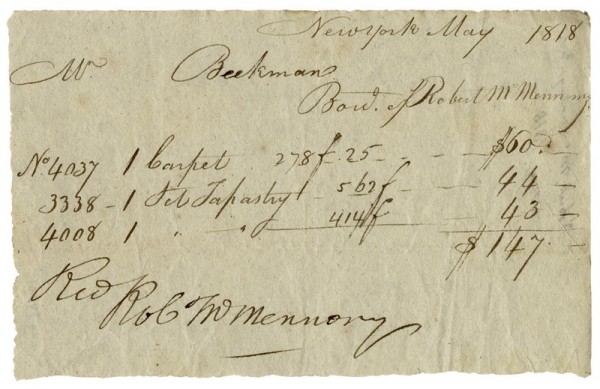 New York May 1818
Mr Beekman
Bot. of Robert McMennomy
No 4037 1 Carpet 278f. 25 - - $60.
3338 - 1 Tapastry 562f - 44 -
4008 1 " " 414f - 43 -
$147. -
Recd
Robt McMennomy